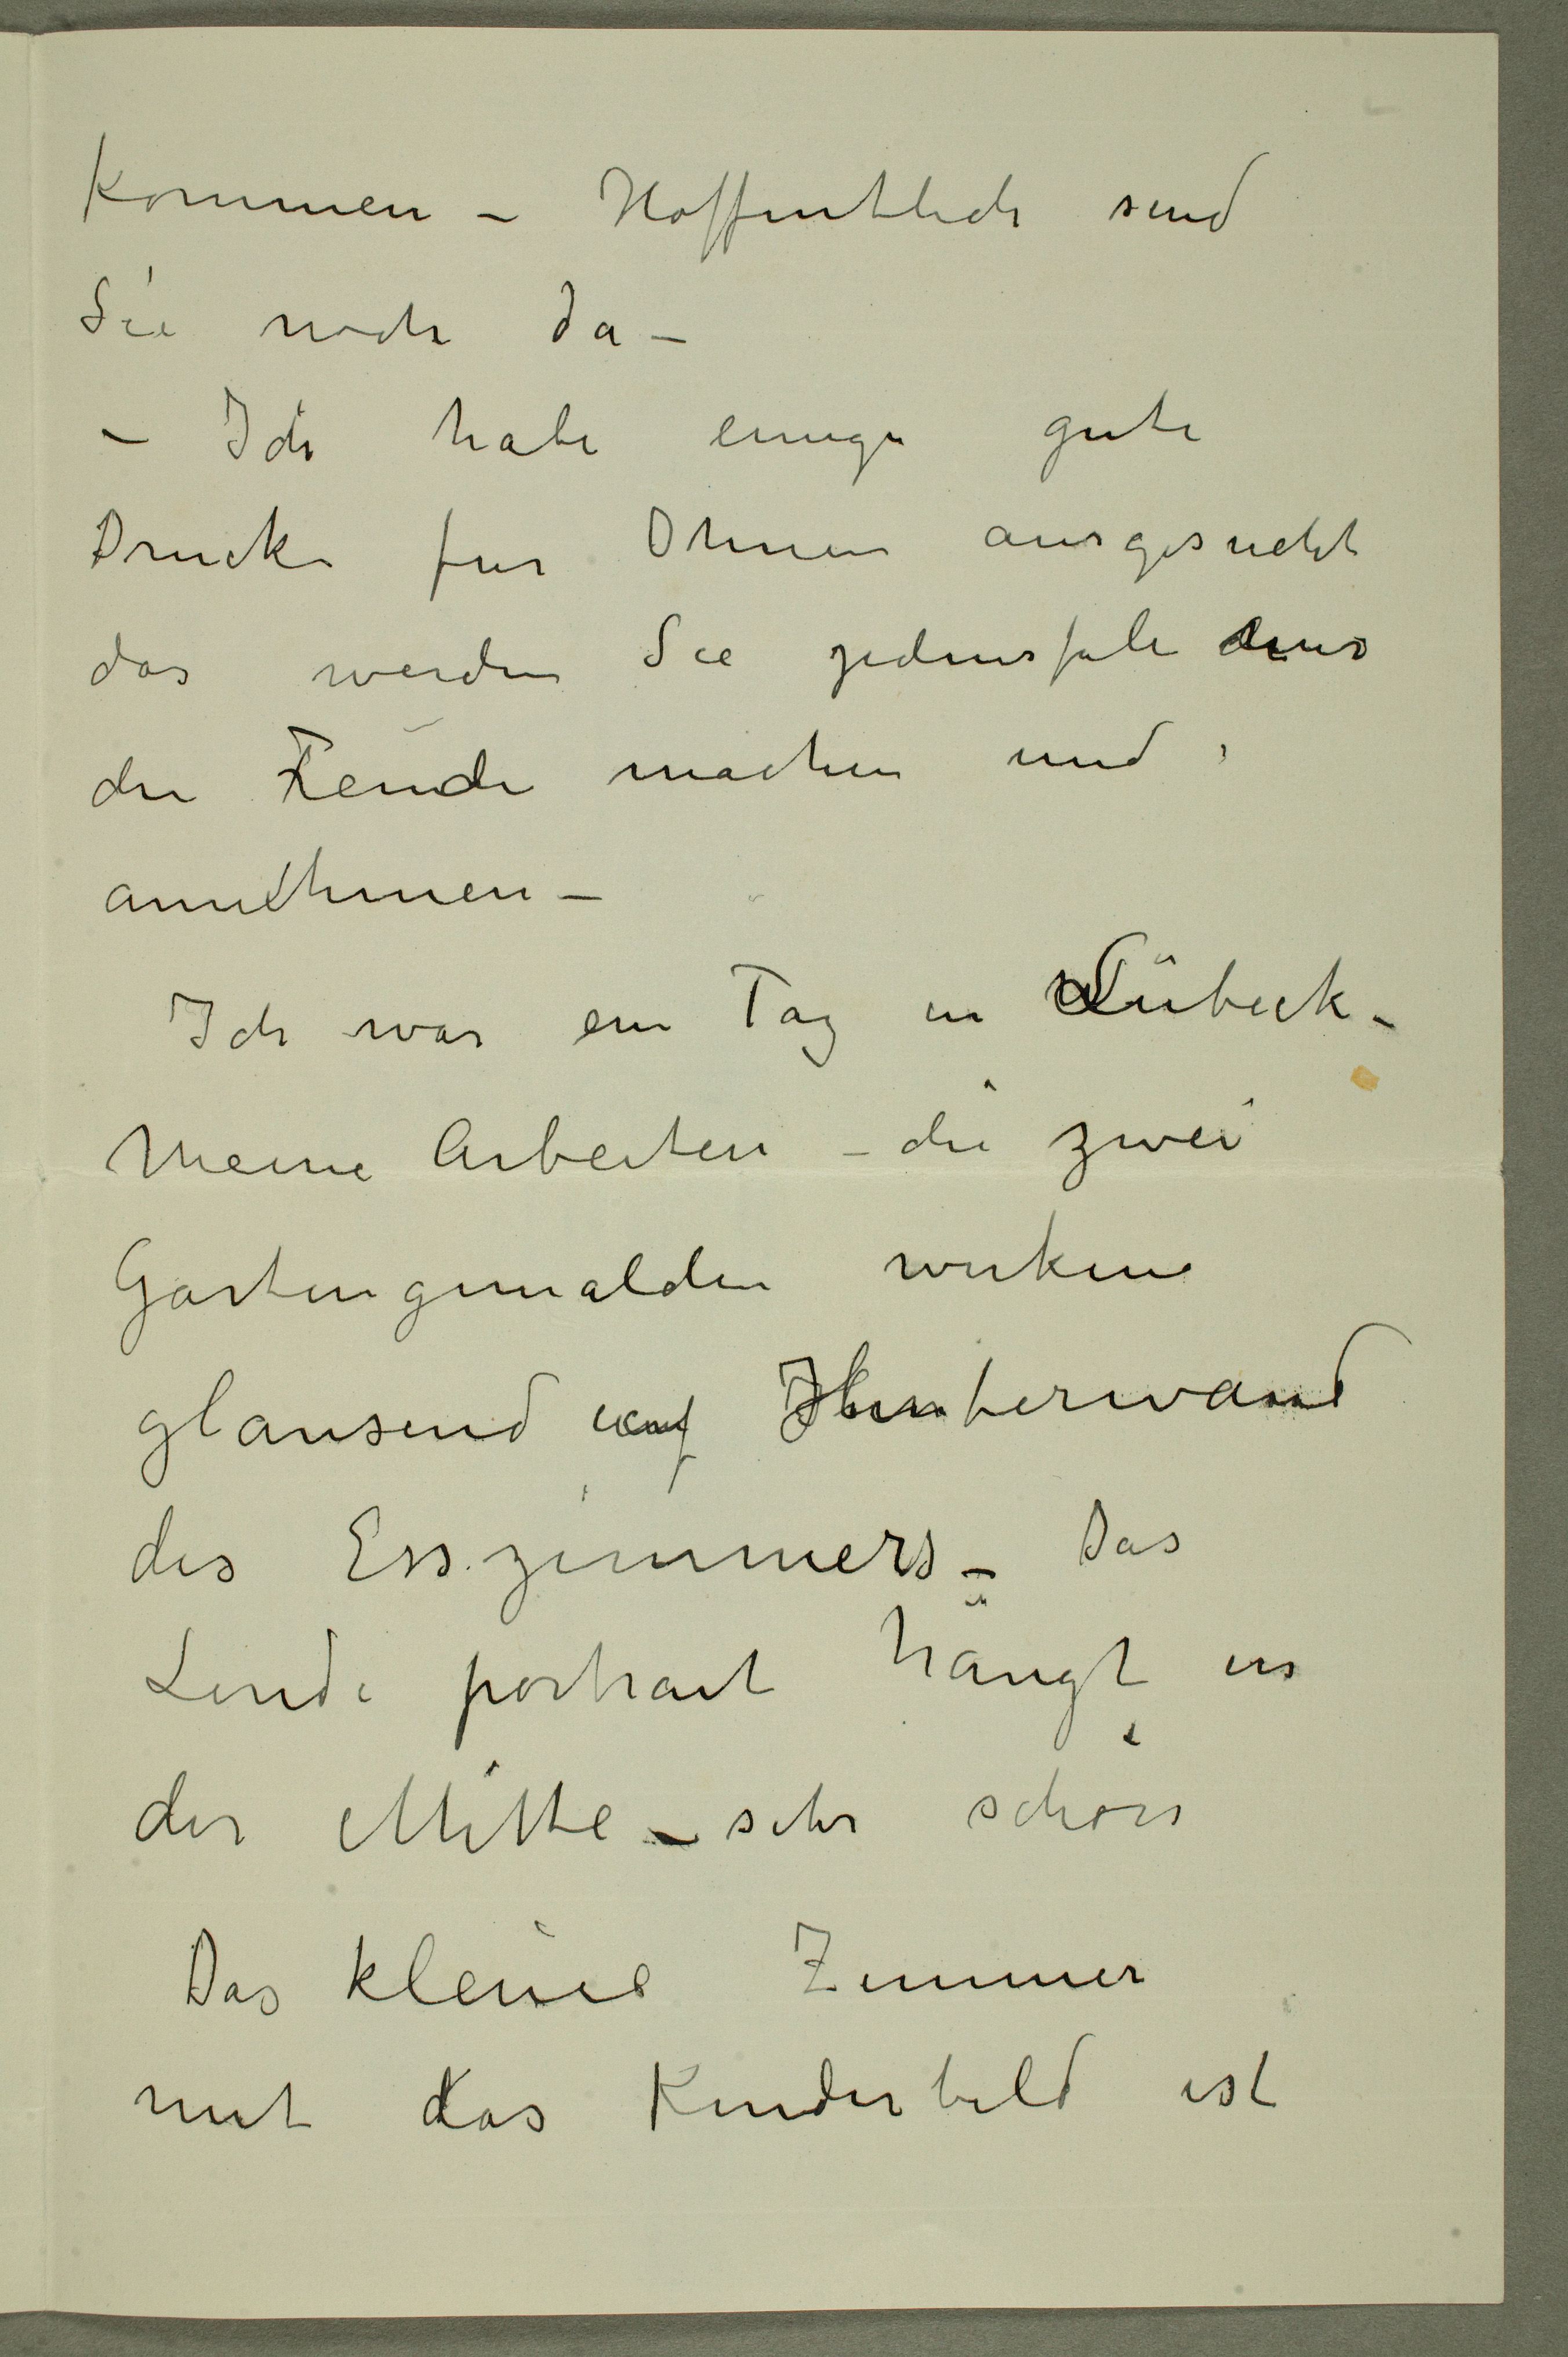 kommen – Hoffentlich sind
Sie noch da –
– Ich habe einige gute
Drucke fur Ihnen ausgesucht
das werden Sie jedensfals
die Feude machen und
annehmen –
Ich war ein Tag in Lübeck –
Meine Arbeiten – die zwei
Gartengemalden wirken
glansend auf Hinterwand
des Esszimmers – Das
Linde portrait hängt in
der Mitte – sehr schön
Das kleine Zimmer
mit das Kinderbild ist